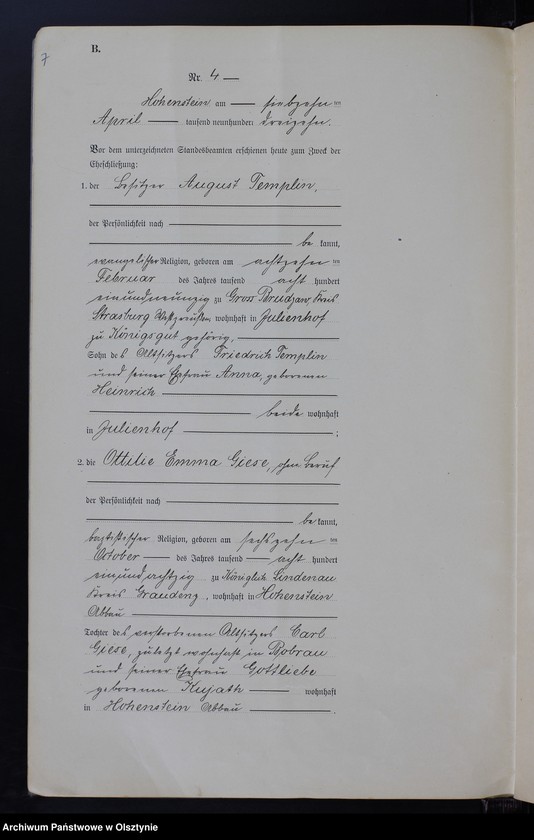 7
B.
Nr. 4
Hohenstein am siebzehn ten
April tausend neunhundert dreizehn.
Vor dem unterzeichneten Standesbeamten erschienen heute zum Zweck der
Eheschließung:
1. der Besitzer August Templin,
der Persönlichkeit nach
be kannt,
evangelischer Religion, geboren am achtzehn ten
Februar des Jahres tausend acht hundert
einundneunzig zu Gross Brudzaw, Kreis
Strasburg Westpreußen, wohnhaft in Julienhof
zu Königsgut gehörig,
Sohn des Altsitzers Friedrich Templin
und seiner Ehefrau Anna, geborenen
Heinrich
beide wohnhaft
in Julienhof ;
2. die Ottilie Emma Giese, ohne Beruf
der Persönlichkeit nach
be kannt,
baptistischer Religion, geboren am sechszehn ten
October des Jahres tausend acht hundert
einundachtzig zu Königlich Lindenau
Kreis Graudenz, wohnhaft in Hohenstein
Abbau
Tochter des verstorbenen Altsitzers Carl
Giese, zuletzt wohnhaft in Bobrau
und seiner Ehefrau Gottliebe
geborenen Kujath wohnhaft
in Hohenstein Abbau .
Archiwum Państwowe w Olsztynie